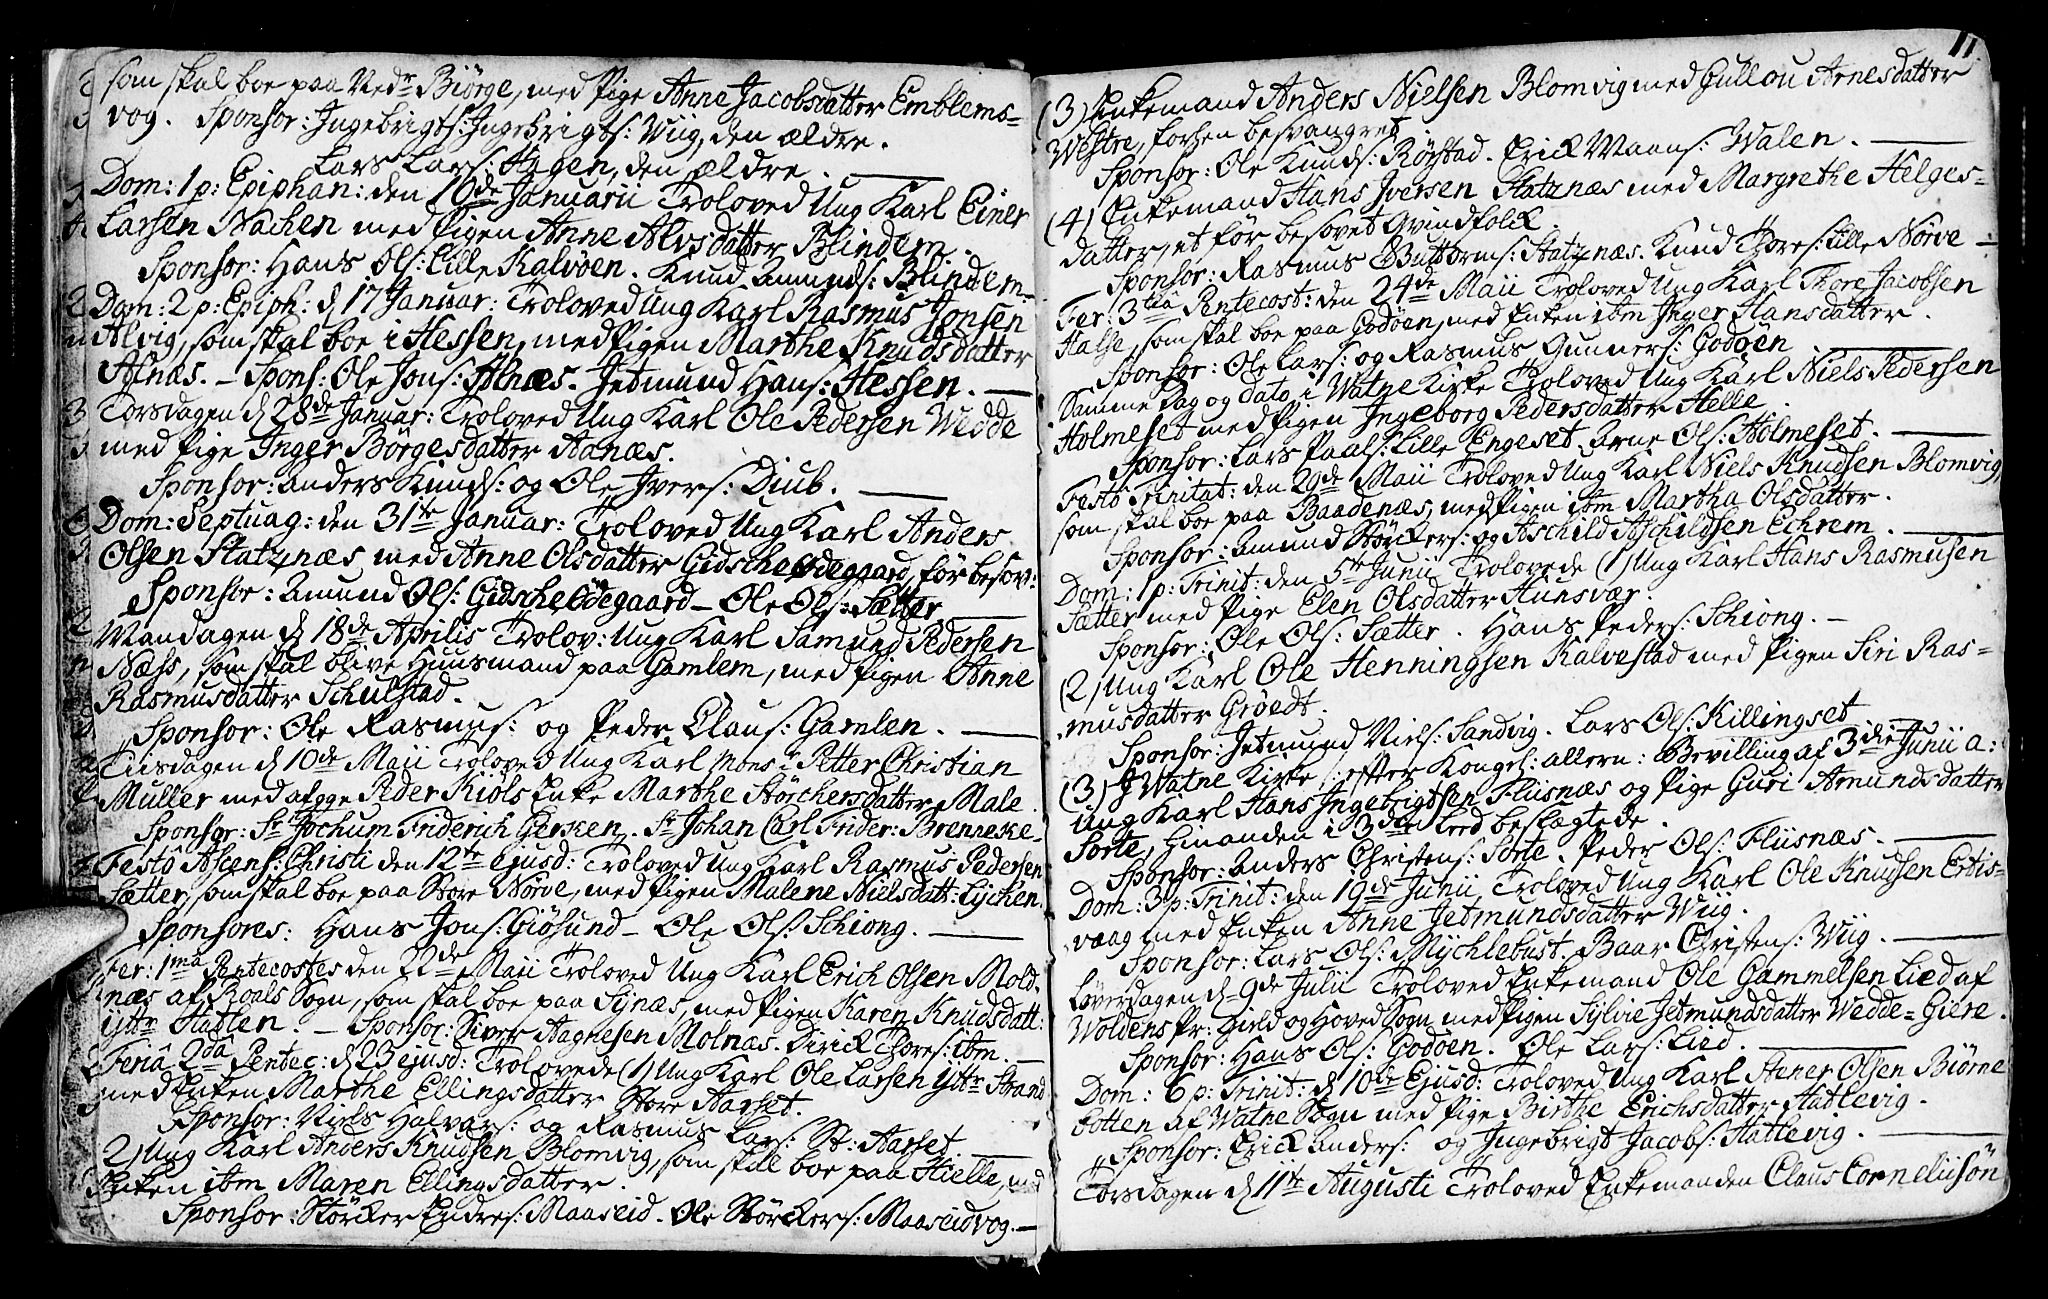 som skal boe paa Nedr. Biørge, med Pige Anne Jacobsdatter Emblems-
vog. Sponsor: Ingebrigts: Ingebrigts: Wiig, den ældre.
Lars Lars: Hagen, den ældre.
Dom: 1 p: Epiphan: den 10de Januarii Troloved Ung Karl Einer
Larsen Nachen med Pigen Anne Alvsdatter Blindem.
Sponsor: Hans Ols: Lille Kalvøen. Knud Amunds: Blindem.
Dom: 2 p: Epiph: d 17 Januar: Troloved Ung Karl Rasmus Jonsen
Alvig, som skal boe i Hessen, med Pigen Marthe Knudsdatter
Alnæs. - Spons: Ole Jons: Alnæs. Jetmund Hans: Hessen.
Torsdagen d 28de Januar: Troloved Ung Karl Ole Pedersen Wedde
med Pige Inger Borgesdatter Aanæs.
Sponsor: Anders Knuds: og Ole Ivers: Diub.
Dom: Septuag: den 31te Januar: Troloved Ung Karl Anders
Olsen Statznæs med Anne Olsdatter Gidsche Ødegaard, før besov:
Sponsor: Amund Ols: Gidsche Ødegaard - Ole Ols: Sætter
Mandagen d 18de Aprilis Trolov: Ung Karl Samuel Pedersen
Næss, som skal blive Huusmand paa Gamlem, med Pigen Anne
Rasmusdatter Schulstad.
Sponsor: Ole Rasmus: og Peder Claus: Gamlen.
Tiisdagen d 10de Maii Troloved Ung Karl Mons: Petter Christian
Muller med afgge Peder Kiøls Enke Marthe Størchersdatter Male.
Sponsor: Sr Jochum Friderich Gerken. Sr Johan Carl Frider: Brenneke-
Festo Ascens: Christi den 12te Ejusd: Troloved Ung Karl Rasmus Pedersen
Sætter, som skal boe paa Store Nørve, med Pigen Malene Nielsdatt: Lychen.
Sponsores: Hans Jons: Giøsund - Ole Ols: Schiong.
Fer: 1ma Pentecostes den 22de Maii Troloved Ung Karl Erich Olsen Mold-
næs af Roals Sogn, som skal boe paa Synæs, med Pigen Karen Knudsdatt:
Yttr Hatlen. - Sponsor: Siver Aagnesen Molnæs. Dirick Thores: ibm.
Feriâ 2dâ Pentec: d 23 ejusd: Trolovede (1) Ung Karl Ole Larsen Yttr Strand
med Enken Marthe Ellingsdatter Store Aarset.
Sponsor: Niels Halvars: og Rasmus Lars: St: Aarset
2) Ung Karl Anders Knudsen Blomvig, som skal boe paa Hielle, med
Enken ibm Maren Ellingsdatter.
Sponsor: Størcker Endres: Maaseid. Ole Størckers: Maaseidvog.
11
(3) Enkemand Anders Nielsen Blomvig med Gullou Arnesdatter
Westre, forhen besvangret
Sponsor: Ole Knuds: Rørstad. Erick Maans: Walen.
(4) Enkemand Hans Iversen Statznæs med Margrethe Helges-
datter, et før besovet Qvindfolk
Sponsor: Rasmus Guttorms: Statznæs. Knud Thores: Lille Nørve
Fer: 3tia Pentecost: den 24de Maii Troloved Ung Karl Thore Jacobsen
Halse, som skal boe paa Godøen, med Enken ibm Inger Hansdatter.
Sponsor: Ole Lars: og Rasmus Gunners: Godøen
Samme Dag og dato i Watne Kirke Troloved Ung Karl Niels Pedersen
Holmeset med Pigen Ingeborg Pedersdatter Helle.
Sponsor: Lars Paals: Lille Engeset. Arne Ols: Holmeset.
Festo Trinitat: den 29de Maii Troloved Ung Karl Niels Knudsen Blomvig,
som skal boe paa Baadenæs, med Pigen ibm Martha Olsdatter.
Sponsor: Amund Størckers: og Aschild Aschildsen Echrem.
Dom: 1 p: Trinit: den 5te Junii Trolovede (1) Ung Karl Hans Rasmusen
Sætter med Pige Elen Olsdatter Hunsvær.
Sponsor: Ole Ols: Sætter. Hans Peders: Schiong.
(2) Ung Karl Ole Henningsen Kalvestad med Pigen Siri Ras-
musdatter Grøedt.
Sponsor: Jetmund Niels: Sandvig. Lars Ols: Killingset
(3) I Watne Kirke /: efter Kongel: allern: Bevilling af 3die Junii a:
Ung Karl Hans Ingebrigtsen Fliisnæs og Pige Guri Amundsdatter
Sorte, hinanden i 3die Leed beslagtede.
Sponsor: Anders Christens: Sorte. Peder Ols: Fliisnæs.
Dom: 3 p: Trinit: den 19de Junii Troloved Ung Karl Ole Knudsen Ertis-
vaag med Enken Anne Jetmundsdatter Wiig.
Sponsor: Lars Ols: Mychlebust. Baar Christens: Wiig.
Løverdagen d 9de Julii Troloved Enkemand Ole Gammelsen Lied af
Woldens Pr: Gield og Hoved Sogn med Pigen Sylvie Jetmundsdatter Wedde=Giere.
Sponsor: Hans Ols: Godøen. Ole Lars: Lied.
Dom: 6 p: Trinit: d 10de Ejusd: Troloved Ung Karl Stener Olsen Biørne
botten af Watne Sogn med Pige Birthe Erichsdatter Hatlevig.
Sponsor: Erick Anders: og Ingebrigt Jacobs: Hattevig.
Torsdagen d 11te Augusti Troloved Enkemanden Claus Corneliisøn